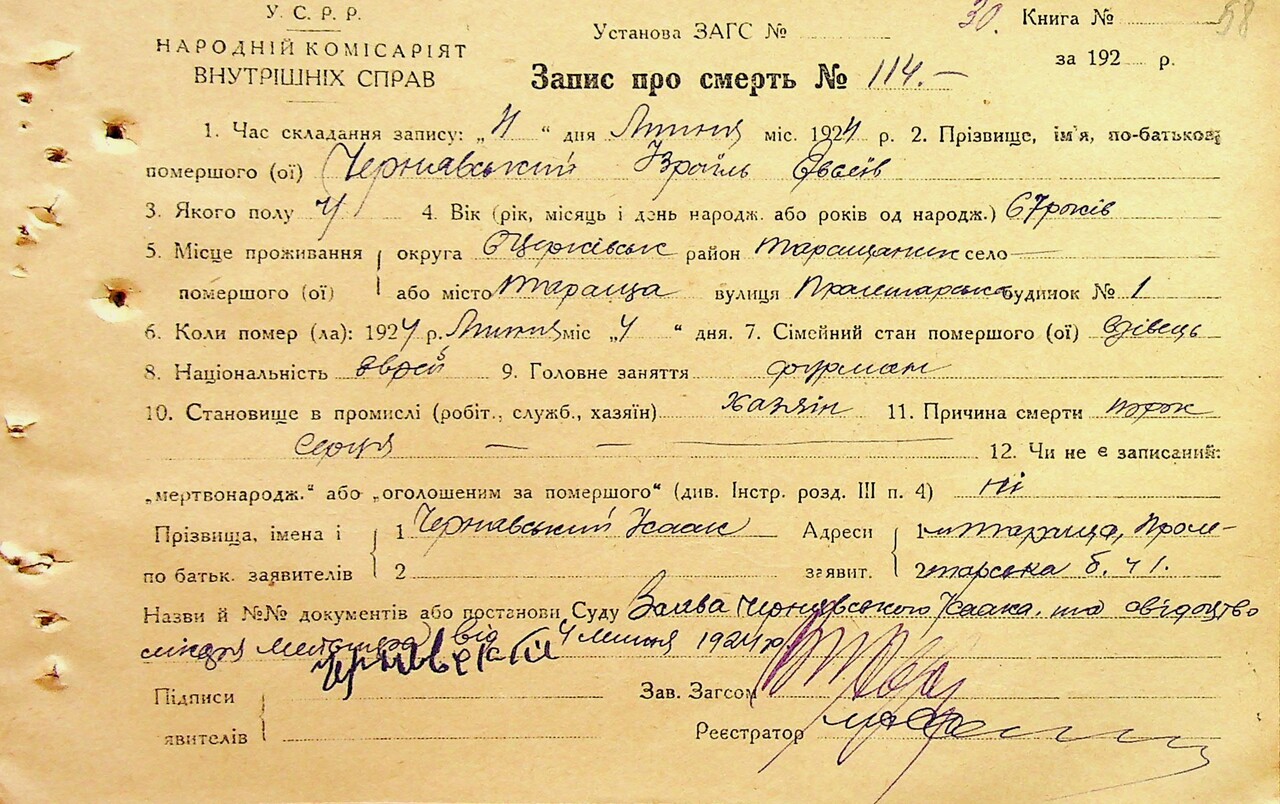 У. С. Р. Р.
НАРОДНІЙ КОМІСАРІЯТ
ВНУТРІШНІХ СПРАВ
Установа ЗАГС №
30. Книга № 58
за 192 р.
Запис про смерть № 114.—
1. Час складання запису: „4“ дня Липня міс. 1924 р. 2. Прізвище, ім'я, по-батькові
помершого (ої) Чернявський Ізраїль Євсеїв
3. Якого полу Ч 4. Вік (рік, місяць і день народж. або років од народж.) 67 років
5. Місце проживання округа БЦерківськ район Таращанськ село —
помершого (ої) або місто Тараща вулиця Пролетарська будинок № 1
6. Коли помер (ла): 1924 р. Липня міс „4“ дня. 7. Сімейний стан помершого (ої) вдівець
8. Національність єврей 9. Головне заняття фурман
10. Становище в промислі (робіт., служб., хазяїн) хазяїн 11. Причина смерти порок
серця — — — 12. Чи не є записаний:
„мертвонародж.“ або „оголошеним за помершого“ (див. Інстр. розд. III п. 4) ні
Прізвища, імена і 1 Чернявський Ісаак Адреси 1 м Тараща, Проле-
по батьк. заявителів 2 заявит. 2 тарська б. ч 1.
Назви й №№ документів або постанови Суду Заява Чернявського Ісаака, та свідоцтво
лікаря від 4 липня 1924 р.
Підписи Чернявский Зав. Загсом
явителів Реєстратор